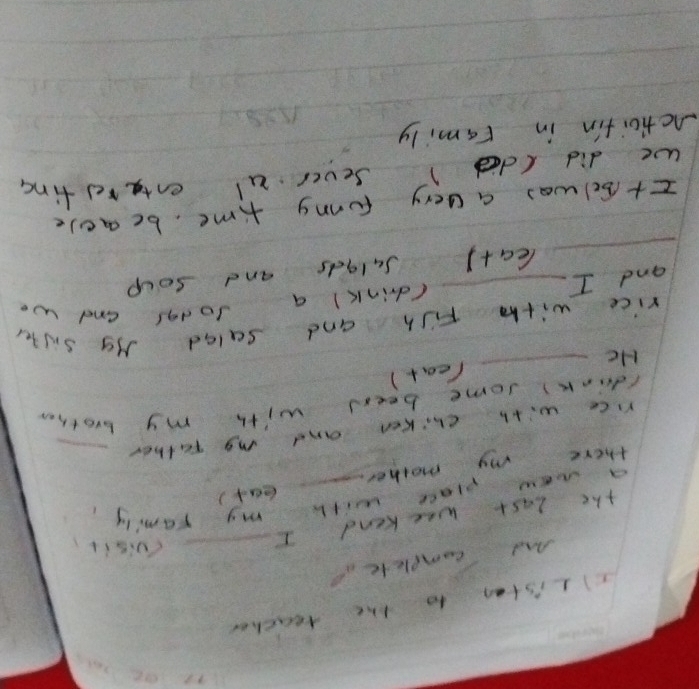 1) Listen to the teacher
And complete
the Last weekend I ____ (visit)
a new place with my Family,
there my mother ____ (eat)
rice with chiken and my Father ____
(drink) some beers with my brother
He ____ (eat)
rice with Fish and salad My sister
and I ____ (drink) a sodas and we
____ (eat) salads and soup
It (Be) was a very funny time. be
we did (do)
in Family